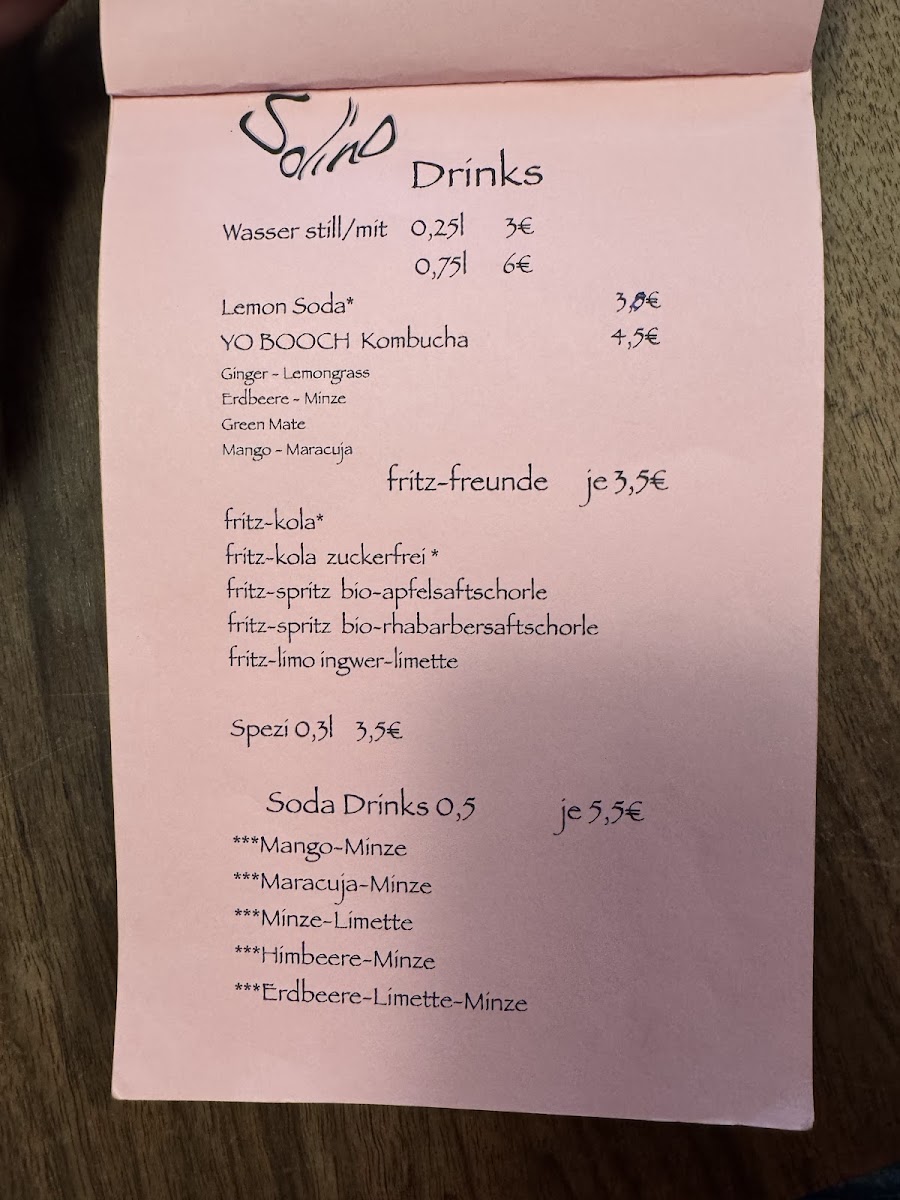 Solino
Drinks
Wasser still/mit 0,25l 3€
0,75l 6€
Lemon Soda*
YO BOOCH Kombucha 4,5€
Ginger - Lemongrass
Erdbeere - Minze
Green Mate
Mango - Maracuja
fritz-freunde je 3,5€
fritz-kola*
fritz-kola zuckerfrei *
fritz-spritz bio-apfelsaftschorle
fritz-spritz bio-rhabarbersaftschorle
fritz-limo ingwer-limette
Spezi 0,3l 3,5€
Soda Drinks 0,5 je 5,5€
***Mango-Minze
***Maracuja-Minze
***Minze-Limette
***Himbeere-Minze
***Erdbeere-Limette-Minze